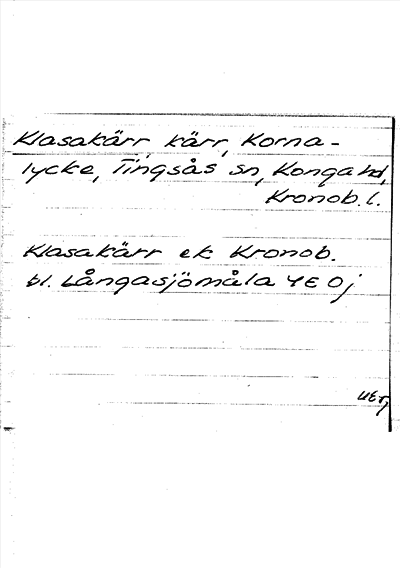 Klasakärr kärr, Korna-
lycke, Tingsås sn, Konga hd,
Kronob. l.
Klasakärr ek Kronob.
bl. Långasjömåla 4E 0j